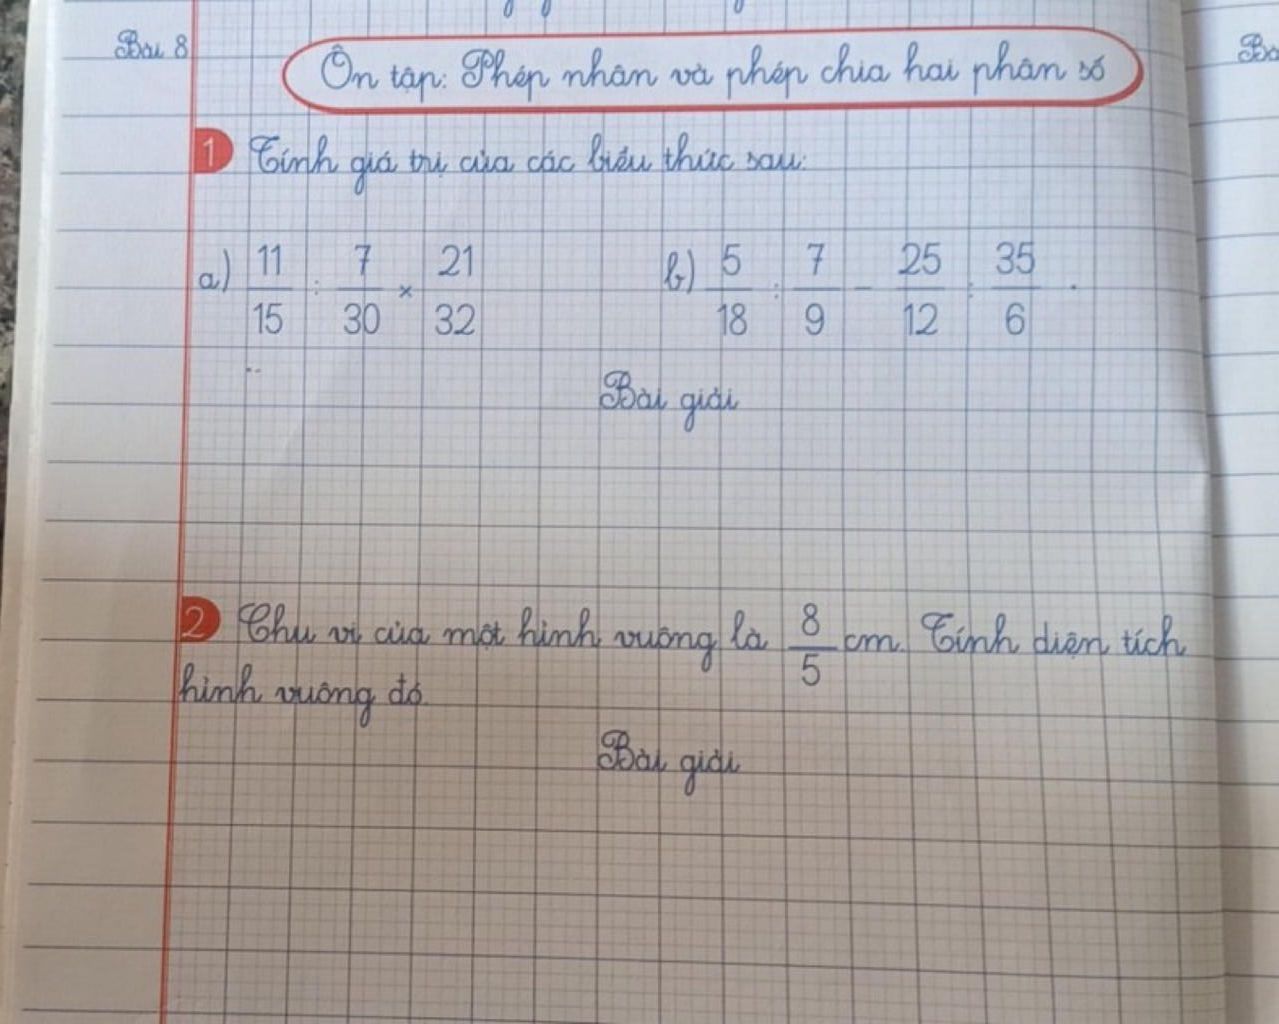 Bài 8
Ôn tập: Phép nhân và phép chia hai phân số
1 Tính giá trị của các biểu thức sau:
a) 11/15 : 7/30 × 21/32 b) 5/18 : 7/9 - 25/12 : 35/6 .
Bài giải
2 Chu vi của một hình vuông là 8/5 cm. Tính diện tích
hình vuông đó.
Bài giải